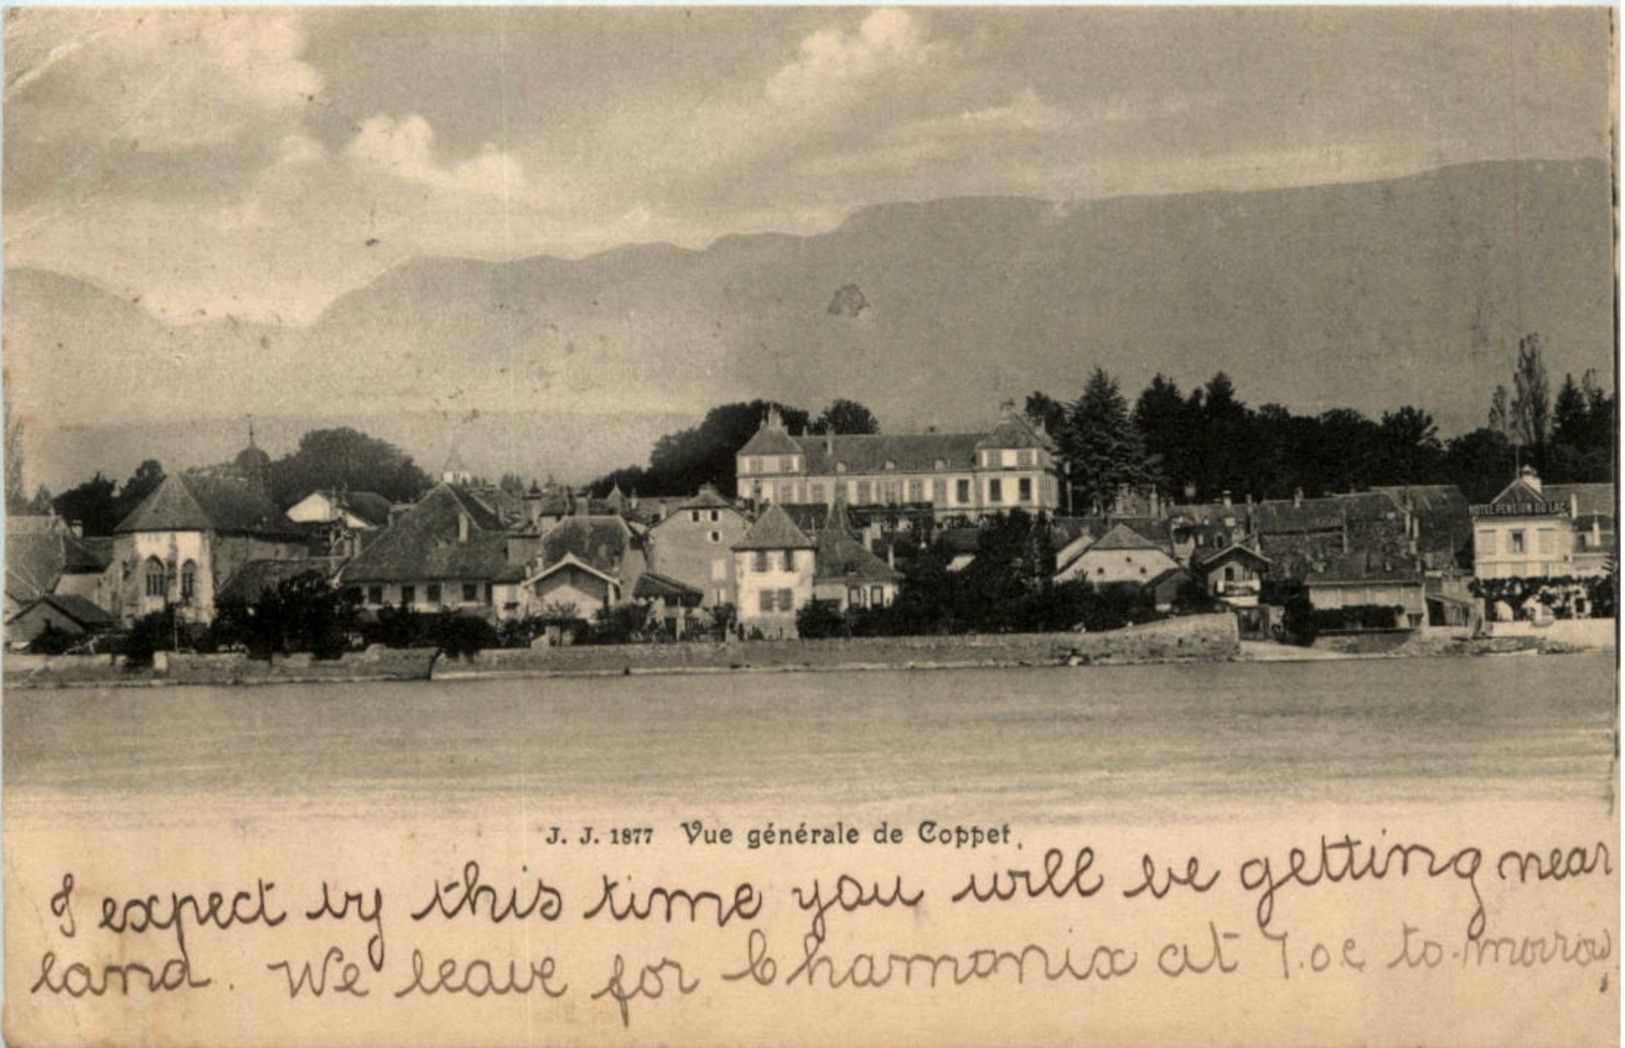 HOTEL PENSION DU LAC
J. J. 1877 Vue générale de Coppet.
I expect by this time you will be getting near
land. We leave for Chamonix at 7.oc to-morrow,